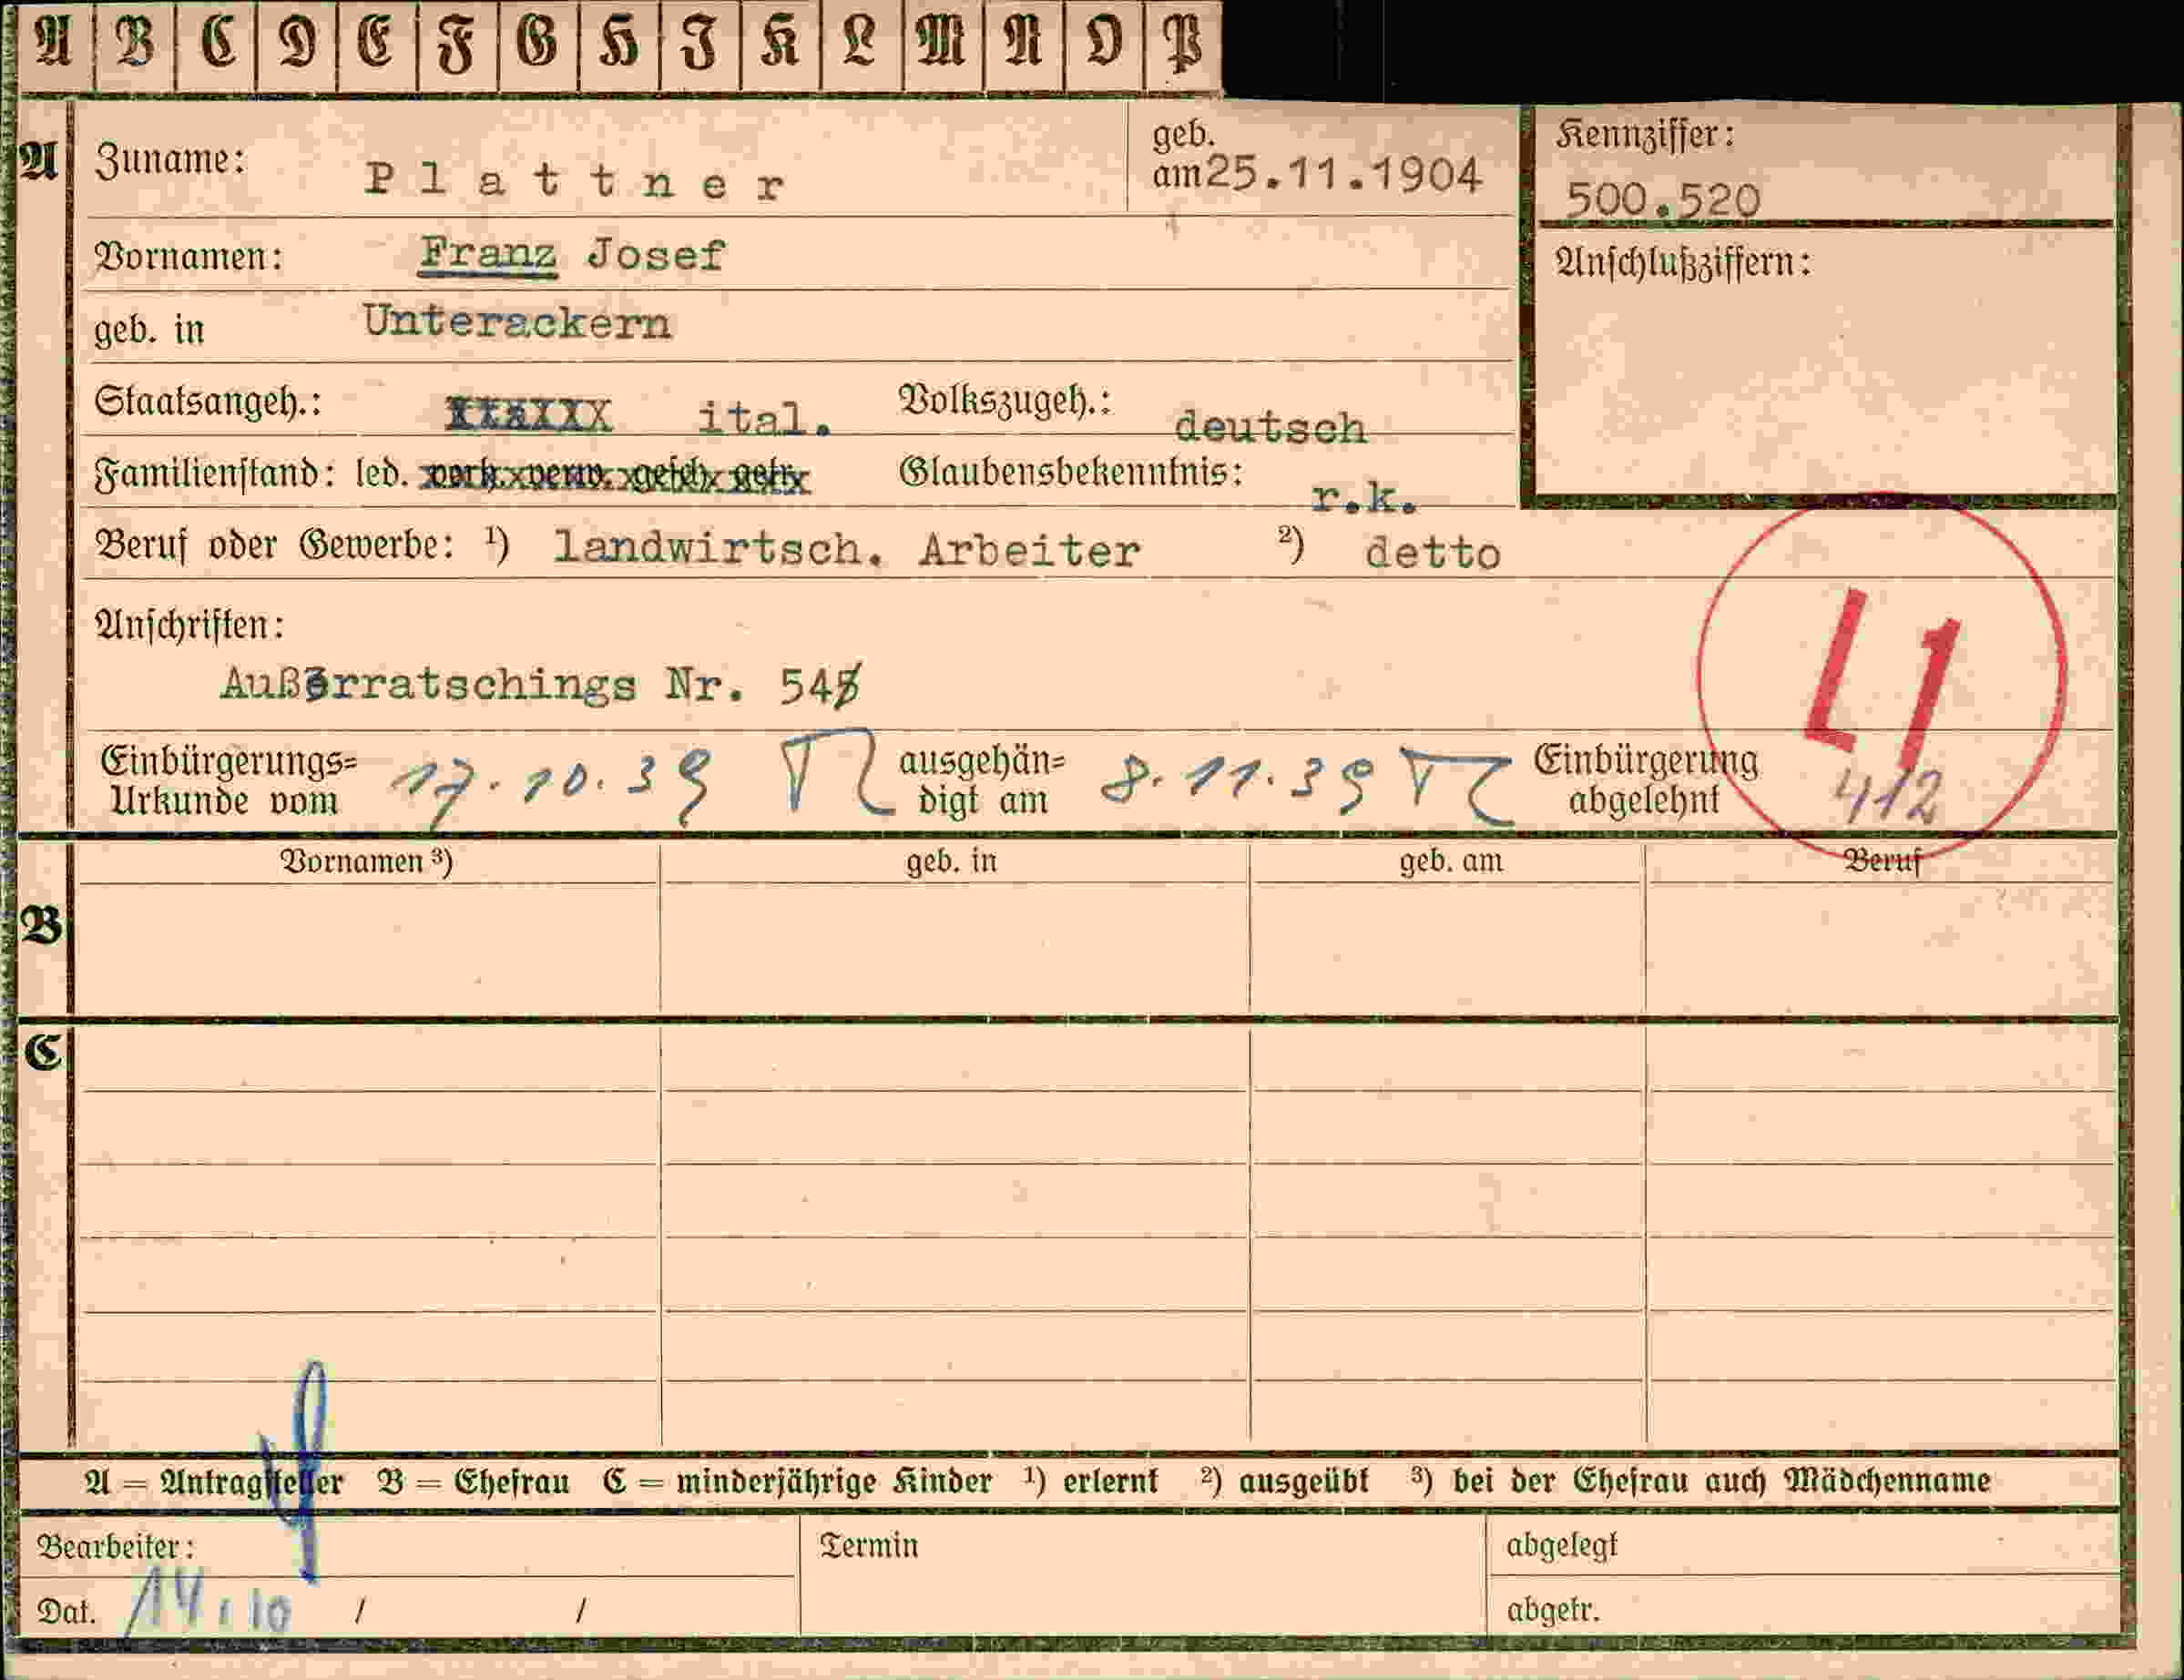 A B C D E F G H I K L M N O P
A Zuname: Plattner geb. am 25.11.1904 Kennziffer: 500.520
Vornamen: Franz Josef Anschlußziffern:
geb. in Unterackern
Staatsangeh.: ital. Volkszugeh.: deutsch
Familienstand: led. verh. verw. gesch. getr. Glaubensbekenntnis: r.k.
Beruf oder Gewerbe: ¹) landwirtsch. Arbeiter ²) detto
Anschriften:
Außerratschings Nr. 54
L1
Einbürgerungs= ausgehän= Einbürgerung
Urkunde vom 17.10.39 digt am 8.11.39 abgelehnt 412
Vornamen ³) geb. in geb. am Beruf
B
C
A = Antragsteller B = Ehefrau C = minderjährige Kinder ¹) erlernt ²) ausgeübt ³) bei der Ehefrau auch Mädchenname
Bearbeiter: Termin abgelegt
Dat. 14.10 / / abgetr.